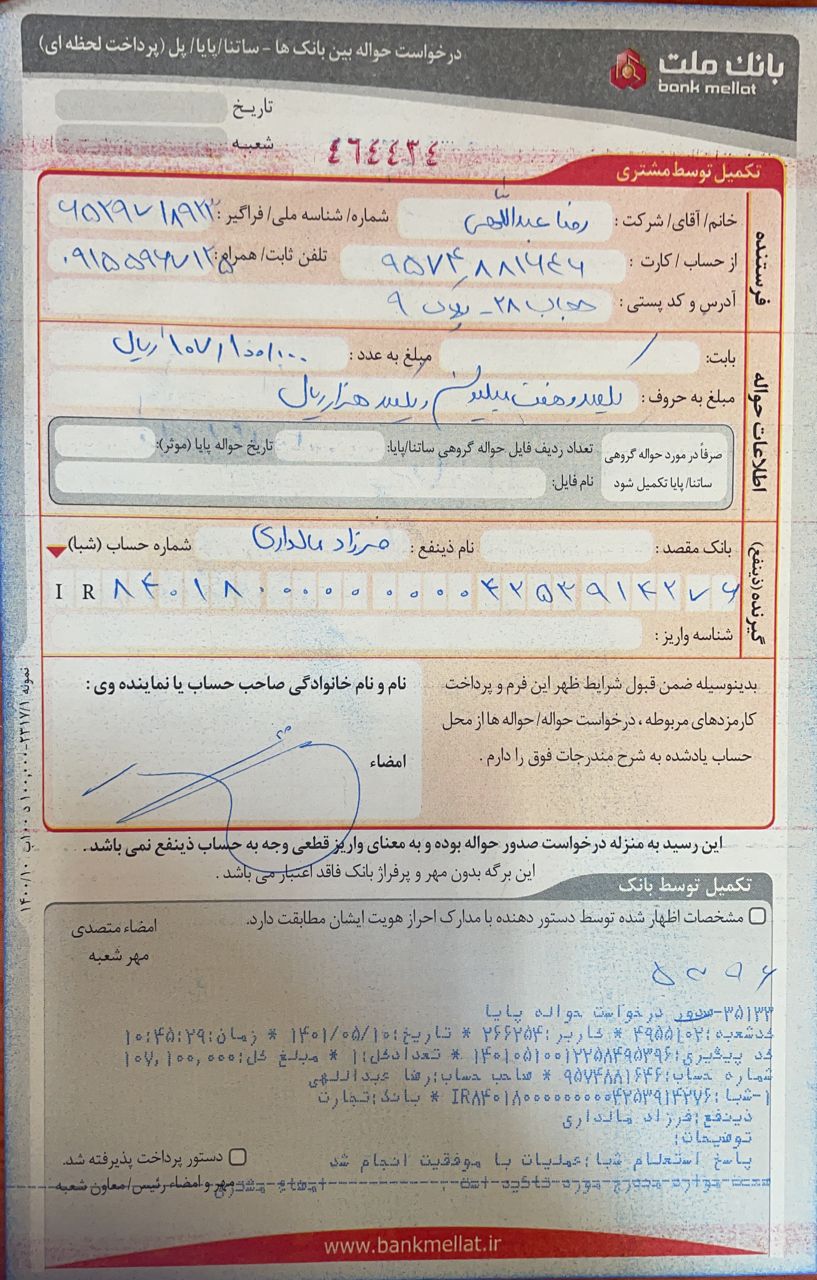 بانک ملت
bank mellat
درخواست حواله بین بانک ها - ساتنا/پایا/ پل (پرداخت لحظه ای)
تاریخ
شعبه
٤٦٤٤٣٤
تکمیل توسط مشتری
فرستنده
خانم/ آقای/ شرکت : رضا عبداللهی شماره/ شناسه ملی/ فراگیر :
از حساب / کارت : ۹۵۷۴۸۸۱۶۴۶ تلفن ثابت/ همراه:
آدرس و کد پستی : حجاب ۲۸ - پلاک ۹
اطلاعات حواله
بابت: مبلغ به عدد : ۱۰۷/۱۰۰/۰۰۰ ریال
مبلغ به حروف : یکصد و هفت میلیون و یکصد هزار ریال
صرفاً در مورد حواله گروهی ساتنا/ پایا تکمیل شود
تعداد ردیف فایل حواله گروهی ساتنا/پایا: تاریخ حواله پایا (موثر):
نام فایل:
گیرنده (ذینفع)
بانک مقصد : نام ذینفع : فرزاد مالداری شماره حساب (شبا)
IR ۸۴۰۱۸۰۰۰۰۰۰۰۰۰۰۴۲۵۳۹۱۴۲۷۶
شناسه واریز :
بدینوسیله ضمن قبول شرایط ظهر این فرم و پرداخت
کارمزدهای مربوطه ، درخواست حواله/ حواله ها از محل
حساب یادشده به شرح مندرجات فوق را دارم .
نام و نام خانوادگی صاحب حساب یا نماینده وی :
امضاء
این رسید به منزله درخواست صدور حواله بوده و به معنای واریز قطعی وجه به حساب ذینفع نمی باشد .
این برگه بدون مهر و پرفراژ بانک فاقد اعتبار می باشد .
تکمیل توسط بانک
مشخصات اظهار شده توسط دستور دهنده با مدارک احراز هویت ایشان مطابقت دارد.
امضاء متصدی
مهر شعبه
۳۵۱۳۳-صدور درخواست حواله پایا
کدشعبه:۴۹۵۵۱۰۲ * کاربر:۲۶۶۲۵۴ * تاریخ:۱۴۰۱/۰۵/۱۰ * زمان:۱۰:۴۵:۲۹
کد پیگیری:۱۴۰۱۰۵۱۰۰۱۲۲۵۸۴۹۵۳۹۶ * تعدادکل:۱ * مبلغ کل:۱۰۷,۱۰۰,۰۰۰
شماره حساب:۹۵۷۴۸۸۱۶۴۶ * صاحب حساب:رضا عبداللهی
۱-شبا:IR۸۴۰۱۸۰۰۰۰۰۰۰۰۰۰۴۲۵۳۹۱۴۲۷۶ * بانک:تجارت
ذینفع:فرزاد مالداری
توضیحات:
پاسخ استعلام شبا:عملیات با موفقیت انجام شد
دستور پرداخت پذیرفته شد.
مهر و امضاء رئیس/ معاون شعبه
www.bankmellat.ir